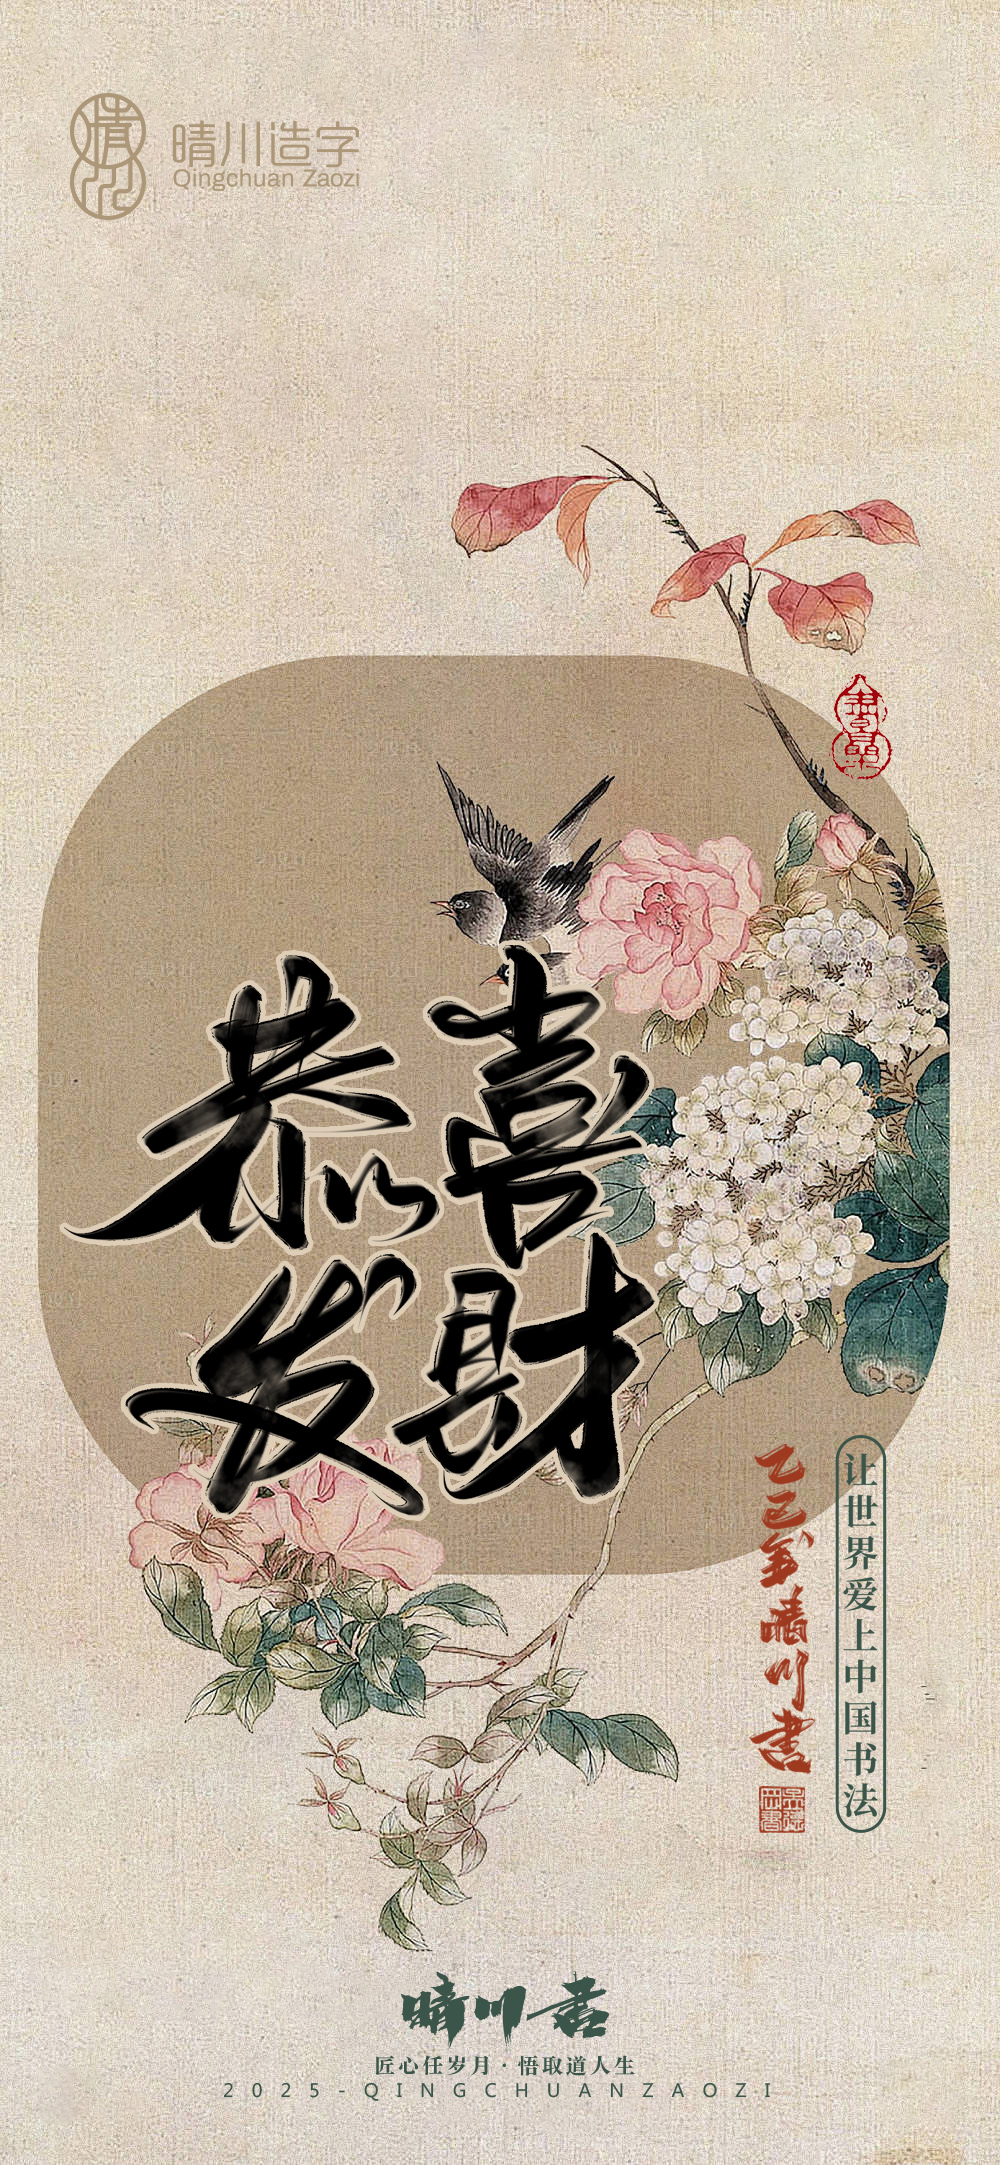 晴川造字
Qingchuan Zaozi
恭喜
发财
乙巳年晴川书
让世界爱上中国书法
晴川书
匠心任岁月·悟取道人生
2025-QINGCHUANZAOZI